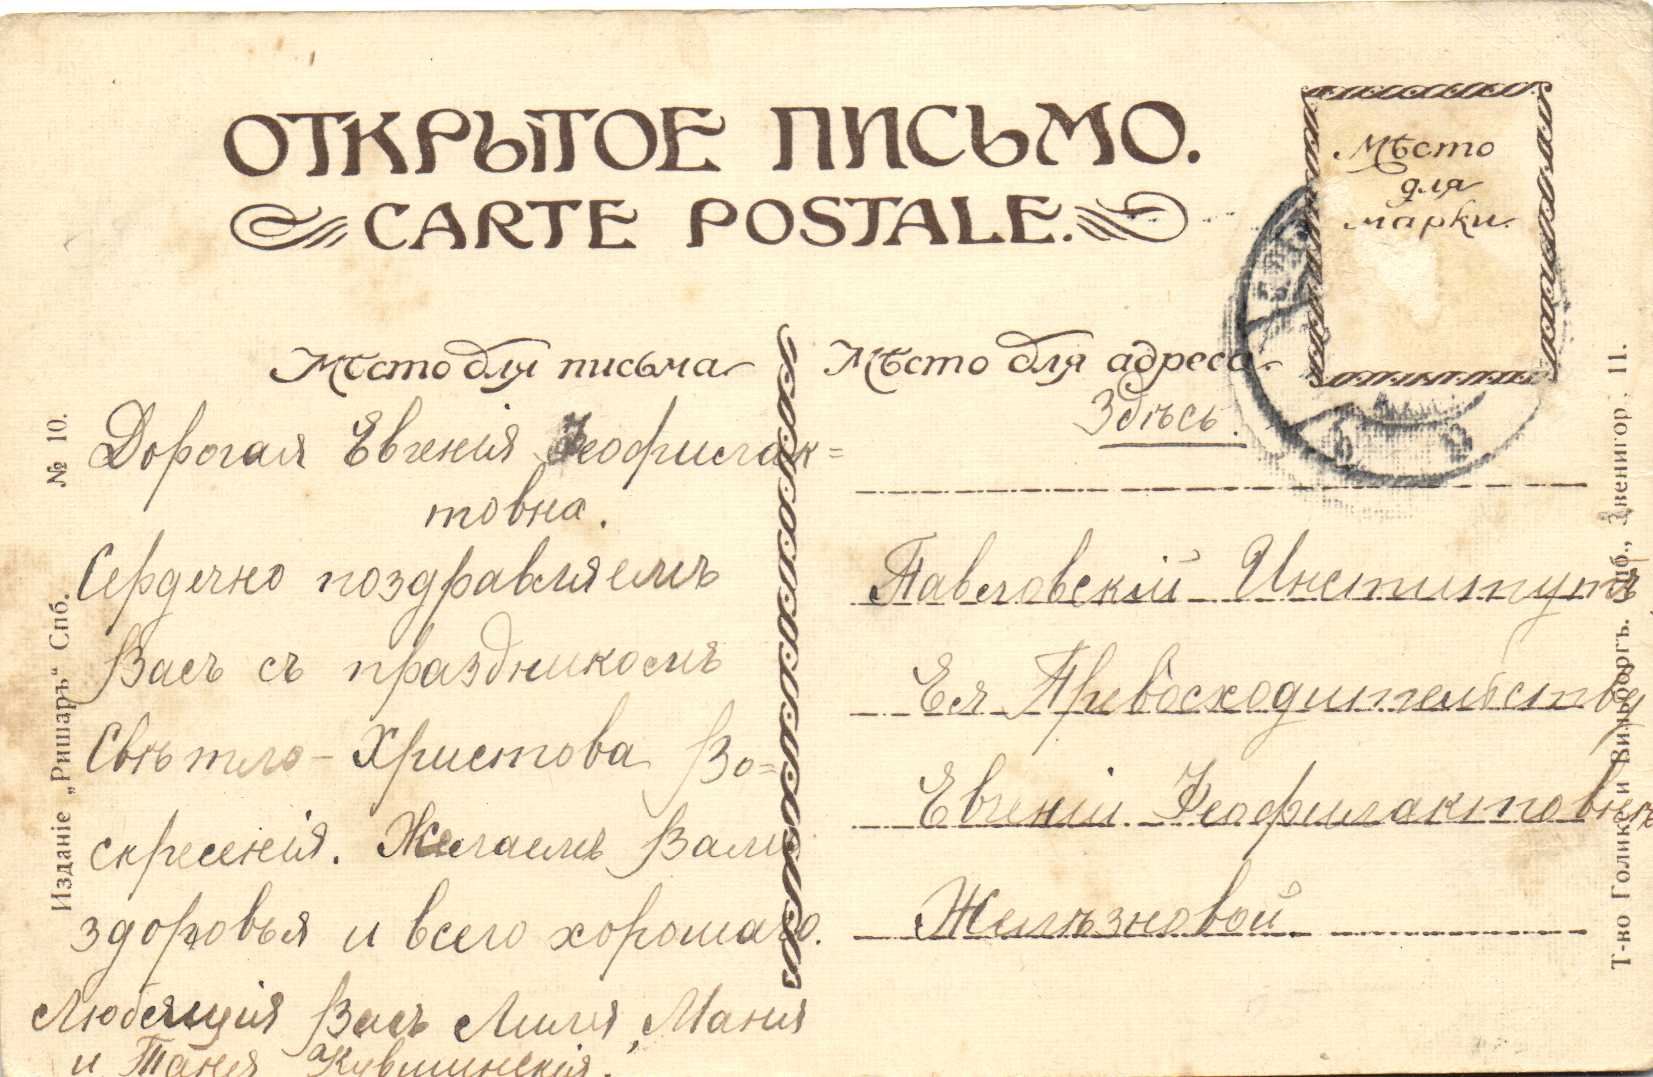 ОТКРЫТОЕ ПИСЬМО.
CARTE POSTALE.
Мѣсто
для
марки.
Мѣсто для письма
Дорогая Евгенія Ѳеофилак=
товна.
Сердечно поздравляемъ
Васъ съ праздникомъ
Свѣтло-Христова Во=
скресенія. Желаемъ Вамъ
здоровья и всего хорошаго.
Любящія Васъ Лиля, Маня
и Таня Кувшинскія.
Мѣсто для адреса.
Здѣсь.
Павловскій Институтъ
Ея Превосходительству
Евгеніи Ѳеофилактовнѣ
Желѣзновой.
Изданіе „Ришаръ“ Спб. № 10.
Т-во Голике и Вильборгъ. Спб., Звенигор. 11.